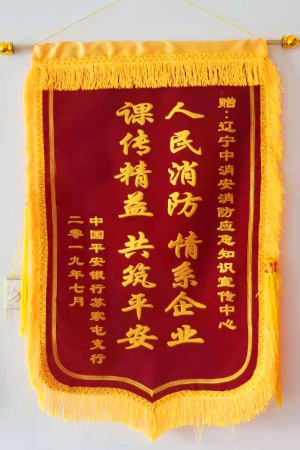 赠:辽宁中消安消防应急知识宣传中心
人民消防 情系企业
课传精益 共筑平安
中国平安银行苏家屯支行
二零一九年七月